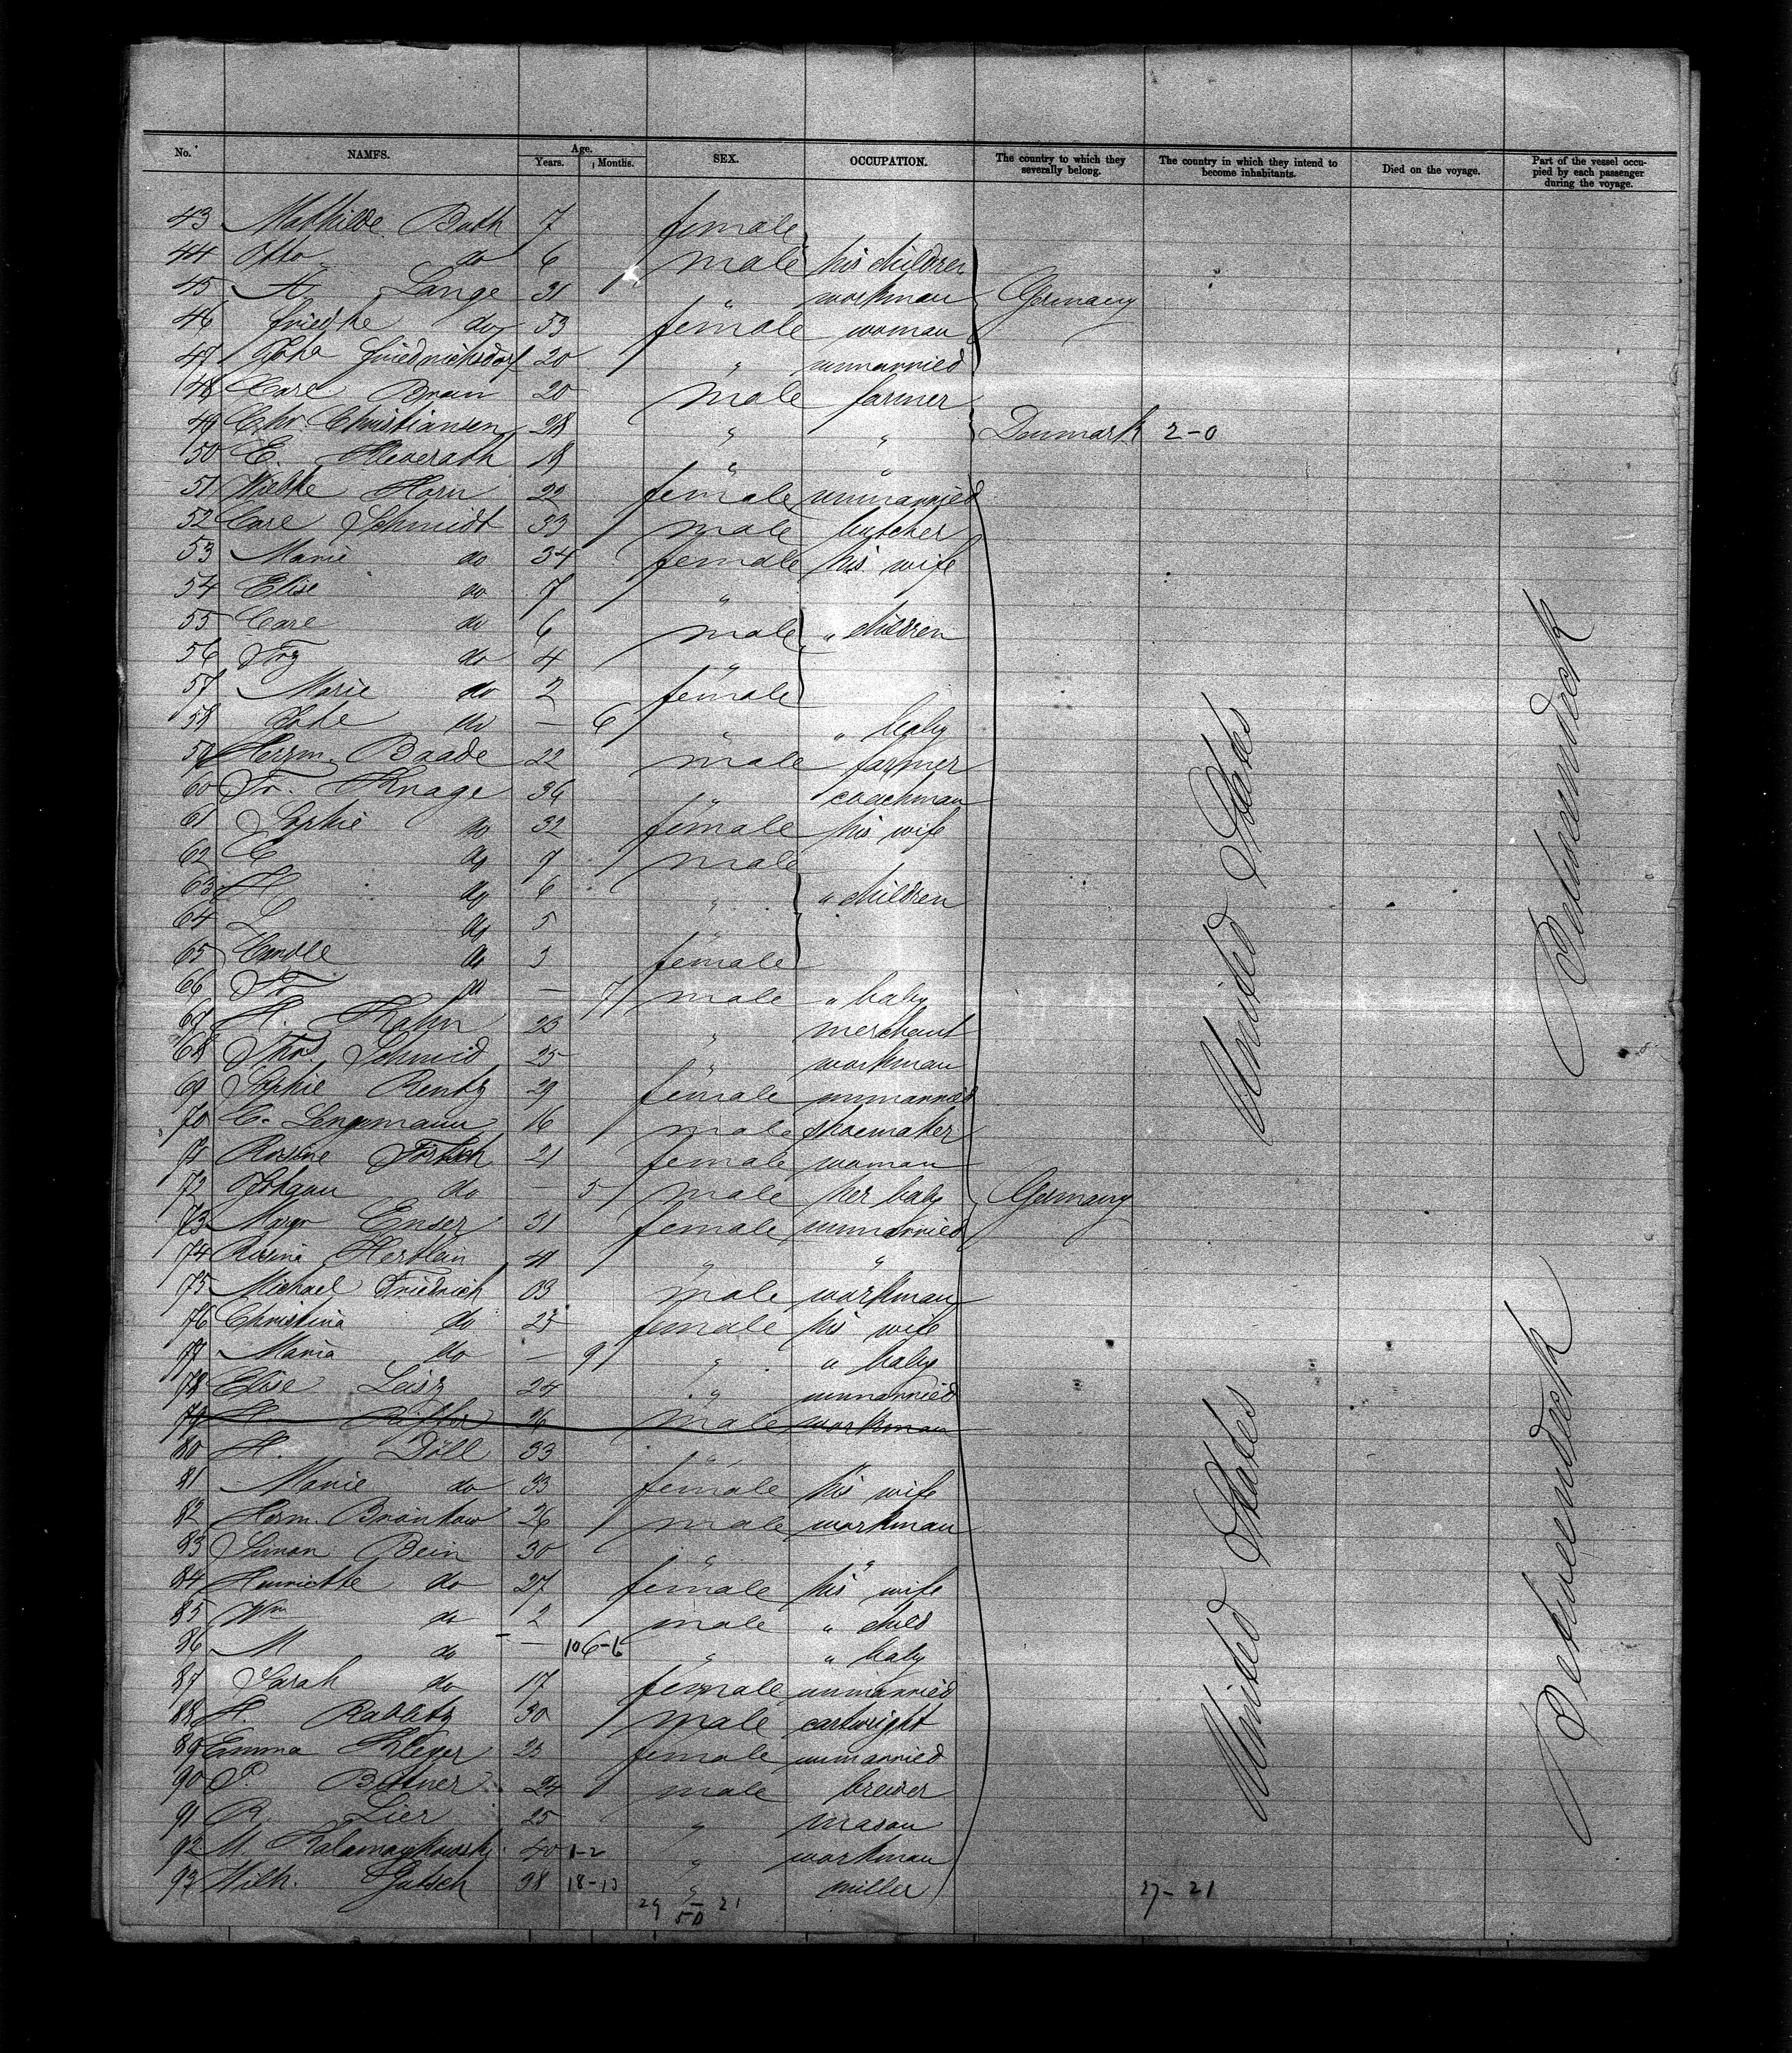 No. NAMES. Age. Years. Months. SEX. OCCUPATION. The country to which they severally belong. The country in which they intend to become inhabitants. Died on the voyage. Part of the vessel occupied by each passenger during the voyage.
43 Mathilde Buth 7 female
44 Otto do 6 male his children
45 A Lange 31 " workman Germany
46 Friedke do 53 female woman
47 Joha Friedrichsdorf 20 " unmarried
48 Carl Brain 20 male farmer
49 Chr. Christiansen 28 " " Denmark 2-0
50 E. Kleverath 18 " "
51 Wiebke Horn 22 female unmarried
52 Carl Schmidt 33 male butcher
53 Marie do 34 female his wife
54 Elise do 7 "
55 Carl do 6 male " children
56 Frz do 4 "
57 Marie do 2 female
58 Johe do — 6 " " baby
59 Herrm. Baade 22 male farmer
60 Fr. Knage 36 " coachman
61 Sophie do 32 female his wife
62 C do 7 male
63 H do 6 " " children
64 L do 5 "
65 Carole do 3 female
66 Fr do — 7 male " baby
67 H. Kahn 23 " merchant
68 Thos Schmid 25 " workman
69 Sophie Rentz 29 female unmarried
70 C. Lengemann 16 male shoemaker
71 Rosine Förtsch 21 female woman
72 Johann do — 5 male her baby Germany
73 Margr Enser 31 female unmarried
74 Rosina Hertlein 41 " "
75 Michael Friedrich 03 male workman
76 Christina do 25 female his wife
77 Maria do — 9 " " baby
78 Elise Leisz 24 " unmarried
79 H. 26 male workman
80 H. Döll 33 "
81 Marie do 33 female his wife
82 Herm. Bränkow 26 male workman
83 Simon Bein 30 " "
84 Henriette do 27 female his wife
85 Wm do 2 male " child
86 M do — 10 6-6 " " baby
87 Sarah do 17 female unmarried
88 H Radlitz 30 male cartwright
89 Emma Kleyer 23 female unmarried
90 P. Bittner 24 male brewer
91 R. Lier 25 " mason
92 M. 40 1-2 " workman
93 Wilh. Gutsch 38 18-13 " miller 27-21
29 50 21
United States
United States
Betweendeck
Betweendeck